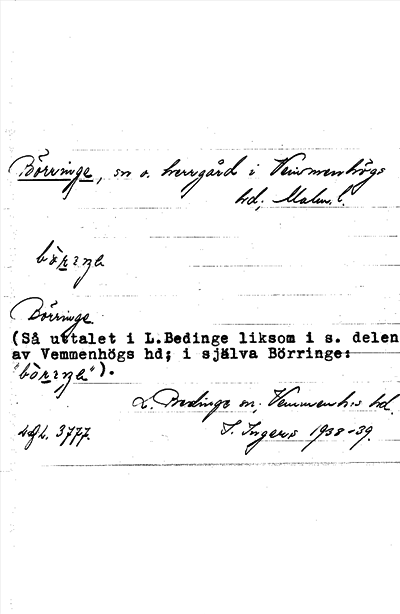 Börringe, sn o. herrgård i Vemmenhögs
hd, Malm. l.
Börringe
(Så uttalet i L.Bedinge liksom i s. delen
av Vemmenhögs hd; i själva Börringe:
L. Bedinge sn, Vemmenhs hd.
3777. I. Ingers 1938-39.